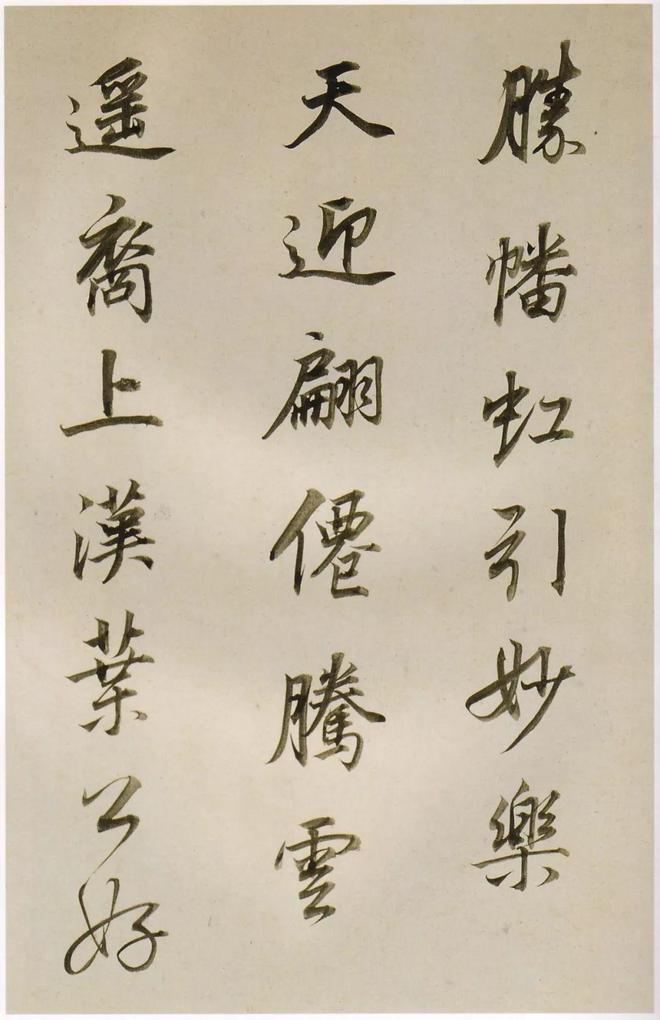 勝幡虹引妙樂
天迎翩僊騰雲
遥裔上漢葉公好